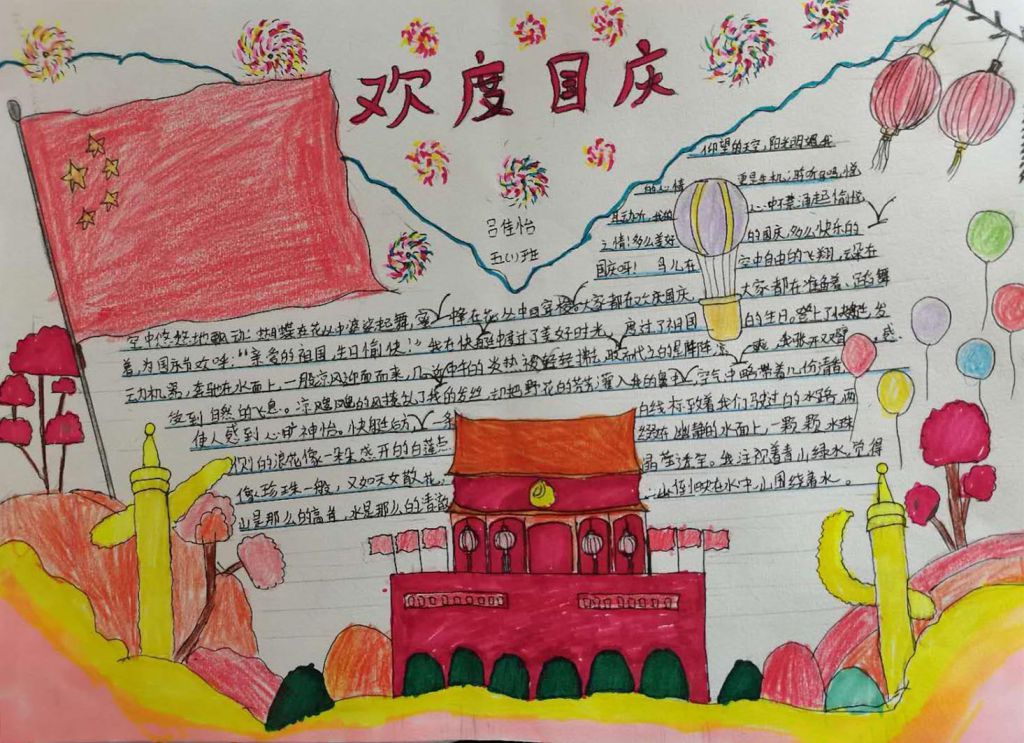 欢度国庆
吕佳怡
五(1)班
仰望的天空,阳光明媚
的心情 更是生机
且动听,我的 心中不禁涌起愉悦
之情!多么美好 的国庆,多么快乐的
国庆呀! 鸟儿在 空中自由的飞翔,云朵在
空中悠悠地飘动; 蝴蝶在花丛中翩翩起舞,蜜 蜂在花丛中 大家都在欢庆国庆, 大家都在准备着、正
着,为国庆节欢呼:“亲爱的祖国,生日愉快!”我在快艇中度过了美好时光, 度过了祖国 的生日。踏上了快艇,发
动机 ,奔驰在水面上,一股凉风迎面而来, 的炎热被轻轻拂去,取而代之的是阵阵 感
受到自然的 息。凉飕飕的风 我的发丝, 把野花的芳香灌入我的鼻 ,空气中略带着几份清香
使人感到心旷神怡。快艇后方 一条 白线标致着我们驶过的水路,两
的浪花像一朵朵盛开的白莲 在幽静的水面上,一颗颗水珠
像珍珠一般,又如天女散花, 晶莹透 。我注视着青山绿水,觉得
山是那么的高 ,水是那么的清 ;山倒映在水中,山围绕着水。